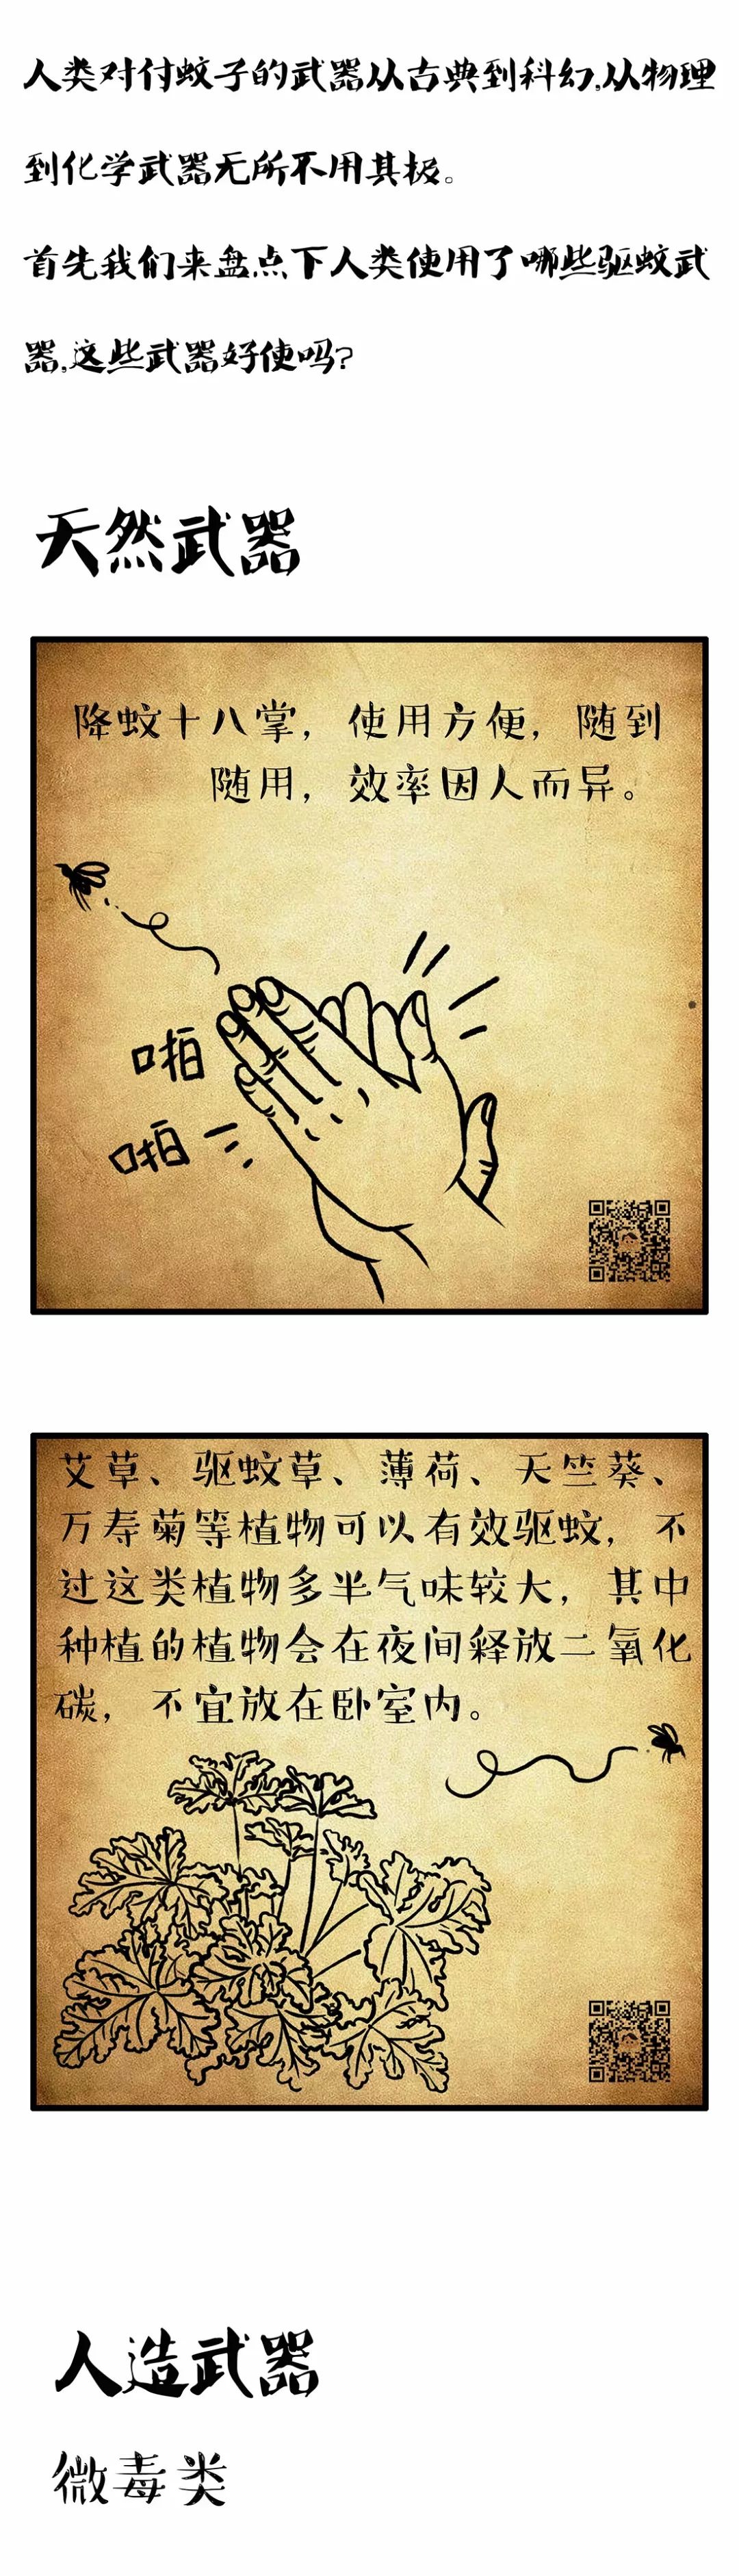 人类对付蚊子的武器从古典到科幻,从物理
到化学武器无所不用其极。
首先我们来盘点下人类使用了哪些驱蚊武
器,这些武器好使吗?
天然武器
降蚊十八掌，使用方便，随到
随用，效率因人而异。
啪
啪
艾草、驱蚊草、薄荷、天竺葵、
万寿菊等植物可以有效驱蚊，不
过这类植物多半气味较大，其中
种植的植物会在夜间释放二氧化
碳，不宜放在卧室内。
人造武器
微毒类